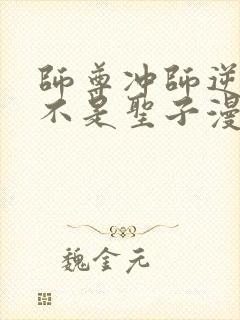 師尊冲師逆
不是聖子漫
魏金元